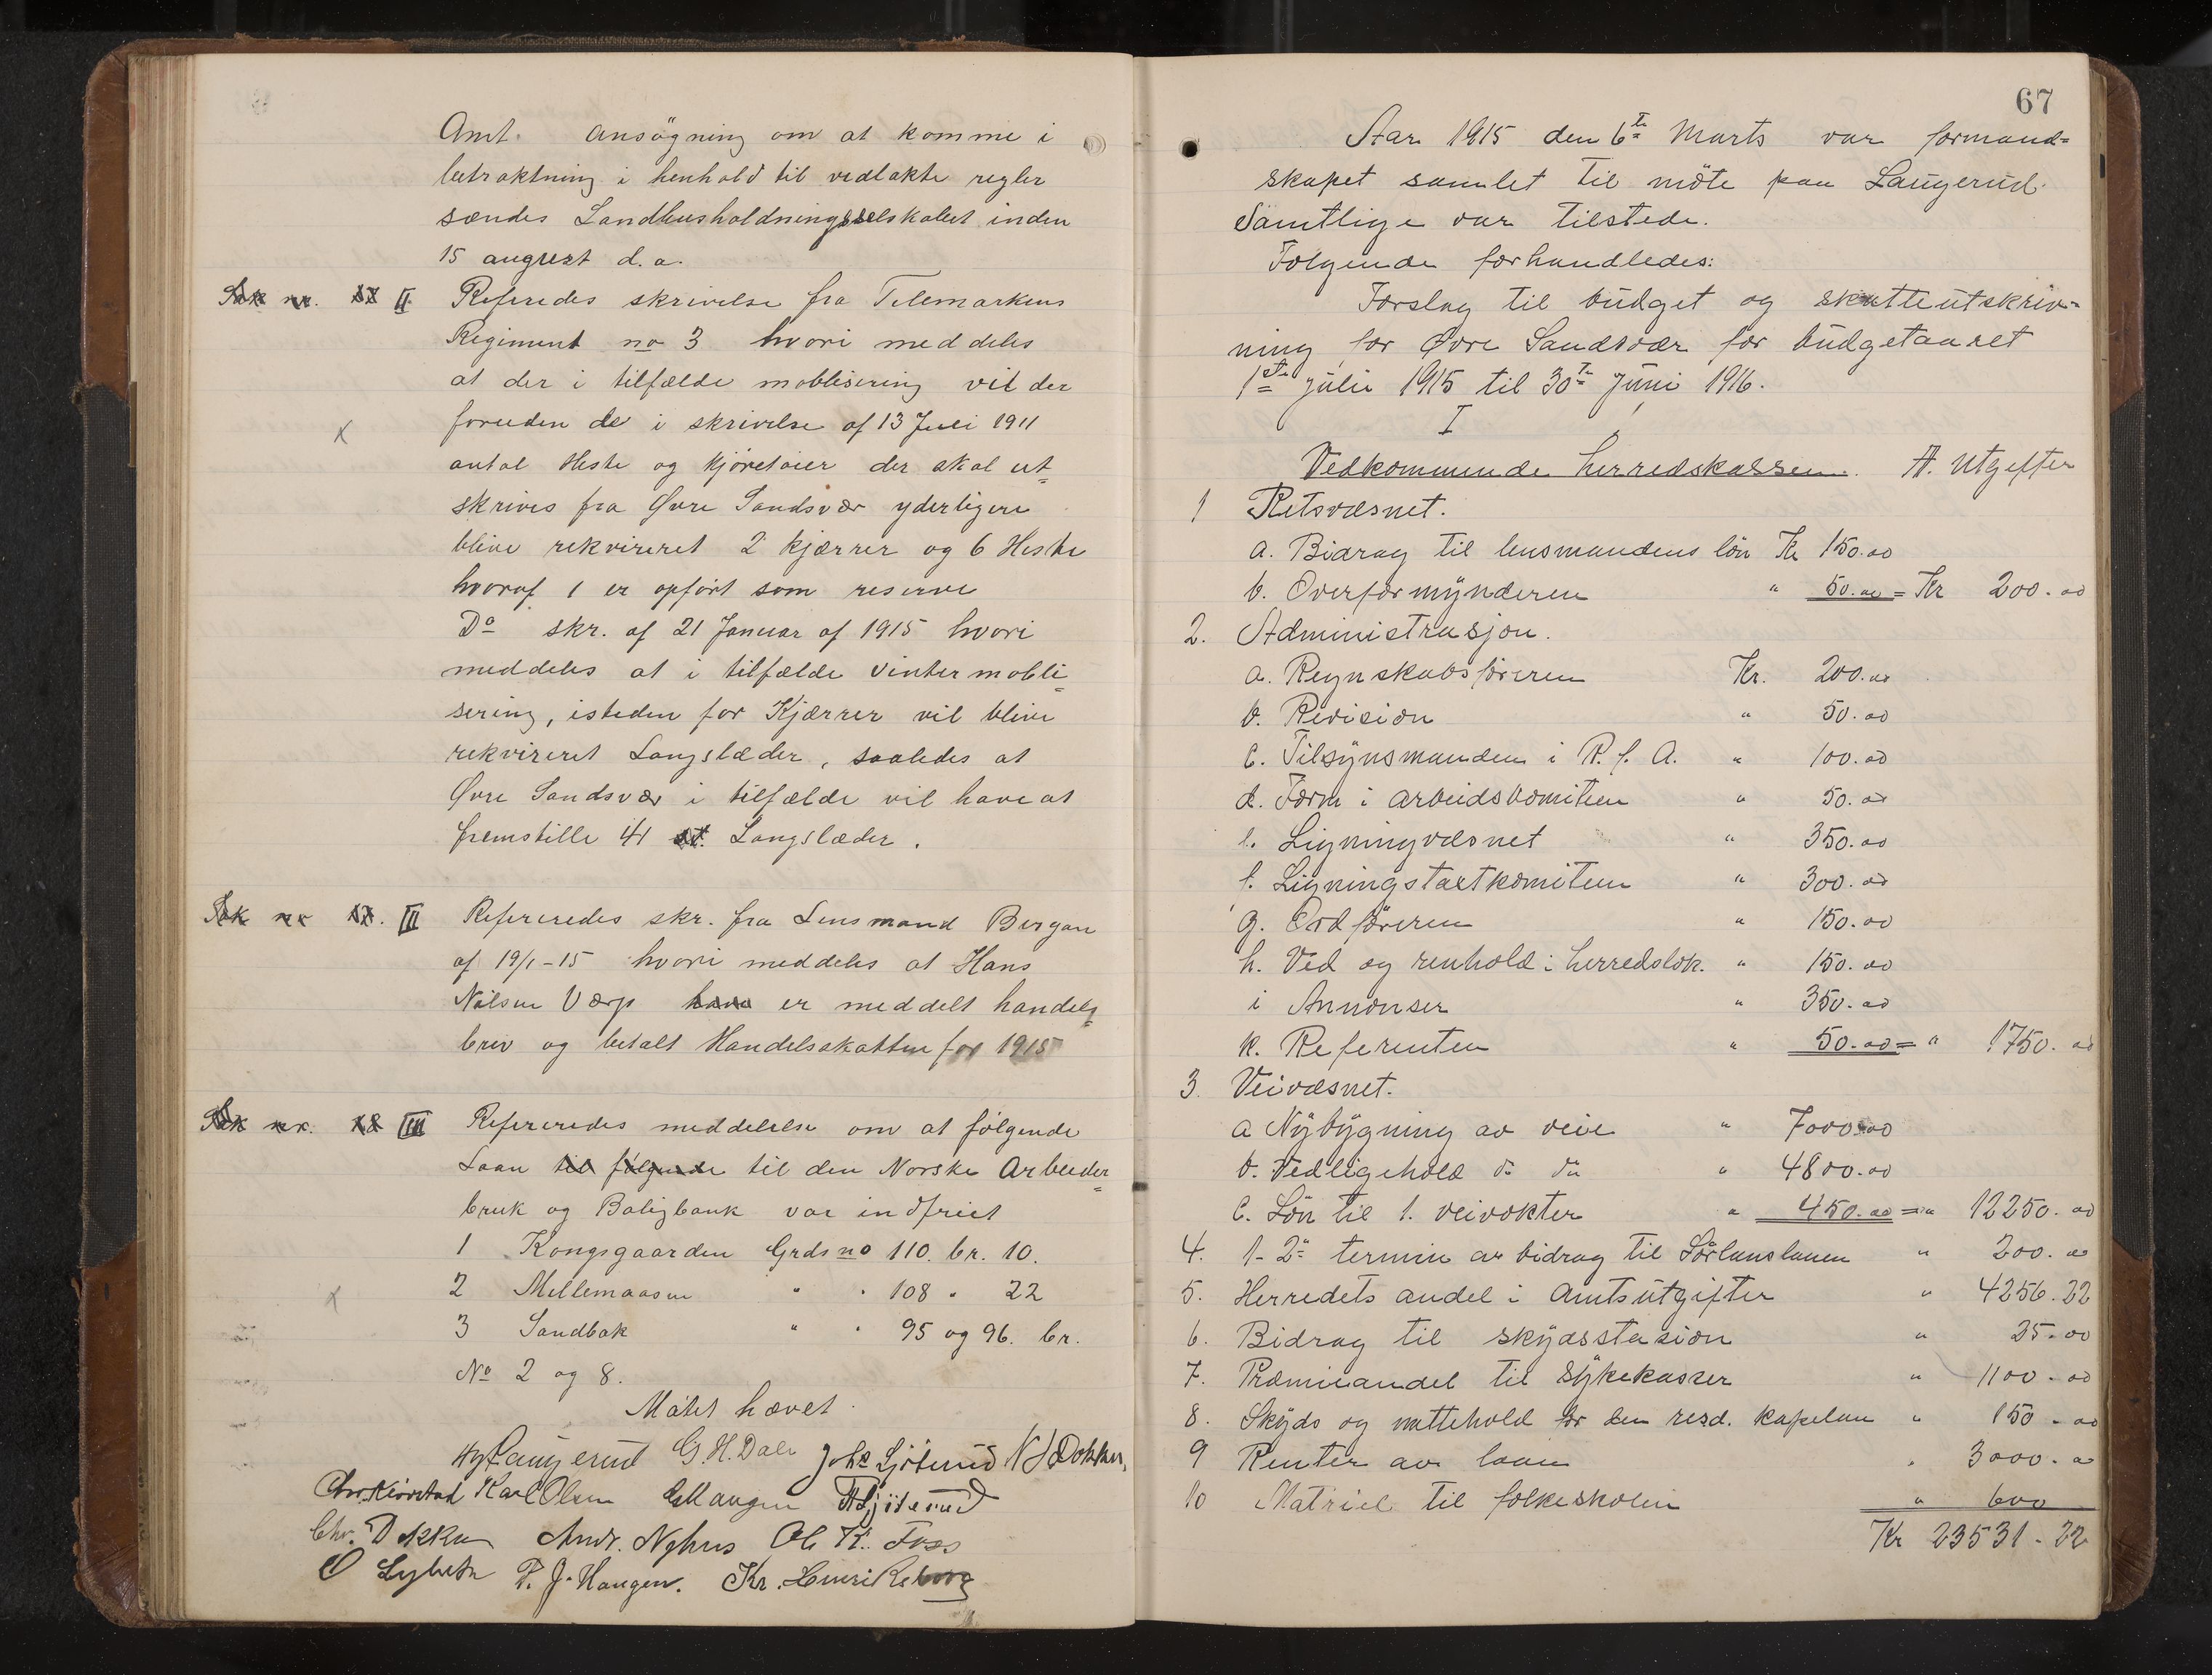 Amt. ansøgning om at komme i
betraktning i henhold til vedlakte regler
sendes Landhusholdningsselskabet inden
15 august d.a.
Sak nr. II Refereredes skrivelse fra Telemarkens
Regiment no 3 hvori meddeles
at der i tilfælde moblisering vil der
foruden de i skrivelse af 13 Juli 1911
antal Heste og Kjøretøier der skal ut=
skrives fra Øvre Sandsvær yderligere
blive rekvireret 2 kjærrer og 6 Heste
hvoraf 1 er opført som reserve
Do skr. af 21 Januar af 1915 hvori
meddeles at i tilfælde vintermobli=
sering, isteden for Kjærrer vil blive
rekvireret Langslæder, saaledes at
Øvre Sandsvær i tilfælde vil have at
fremstille 41 st. Langslæder.
Sak nr III Refereredes skr. fra Lensmand Bergan
af 19/1-15 hvori meddeles at Hans
Nilsen Værp have er meddelt handels=
brev og betalt Handelsskatten for 1915
Sak nr. IIII Refereredes meddelelse om at følgende
Laan til følgende til den Norske Arbeider=
bruk og Boligbank var indfriet
1 Kongsgaarden Grds no 110. br. 10.
2 Mellemaasen " " 108 " 22
3 Sandbak " " 95 og 96. br.
No 2 og 8.
Møtet hævet
Laugerud G. H. Dale Johs Ljøterud N J Dokken
Chr. Kiørstad Karl Olsen E Haugen Ljøterud
Chr. Dokken Andr. Nyhus Ole K. Foss
O Lyheta T. J. Haugen. Kr. Henriksborg
67
Aar 1915 den 6te Marts var formand=
skapet samlet til møte paa Laugerud.
Samtlige var tilstede.
Følgende forhandledes:
Forslag til budget og skatteutskriv=
ning for Øvre Sandsvær for budgetaaret
1ste juli 1915 til 30te Juni 1916.
I
Vedkommende herredskassen. A. Utgifter
1 Retsvæsnet.
a. Bidrag til lensmandens løn Kr 150.00
b. Overformynderen " 50.00 = Kr 200.00
2. Administrasjon.
a. Regnskabsføreren Kr. 200.00
b. Revision " 50.00
c. Tilsynsmanden i R. f. A. " 100.00
d. Form i arbeidskomiteen " 50.00
e. Ligningvæsnet " 350.00
f. Ligningstakstkomiteen " 300.00
g. Ordføreren " 150.00
h. Ved og renhold i herredslok. " 150.00
i Annonser " 350.00
k. Referenten " 50.00 = " 1750.00
3. Veivæsnet.
a Nybygning av veie " 7000.00
b. Vedligehold do do " 4800.00
c. Løn til 1. veivokter " 450.00 = " 12250.00
4. 1- 2den termin av bidrag til Sørlansbanen " 200.00
5. Herredets andel i Amtsutgifter " 4256.22
6. Bidrag til skydsstasion " 25.00
7. Præmieandel til Sykekasser " 1100.00
8. Skyds og nattehold for den resd. kapelan " 150.00
9 Renter av laan " 3000.00
10 Matriel til folkeskolen " 600
Kr 23531.22